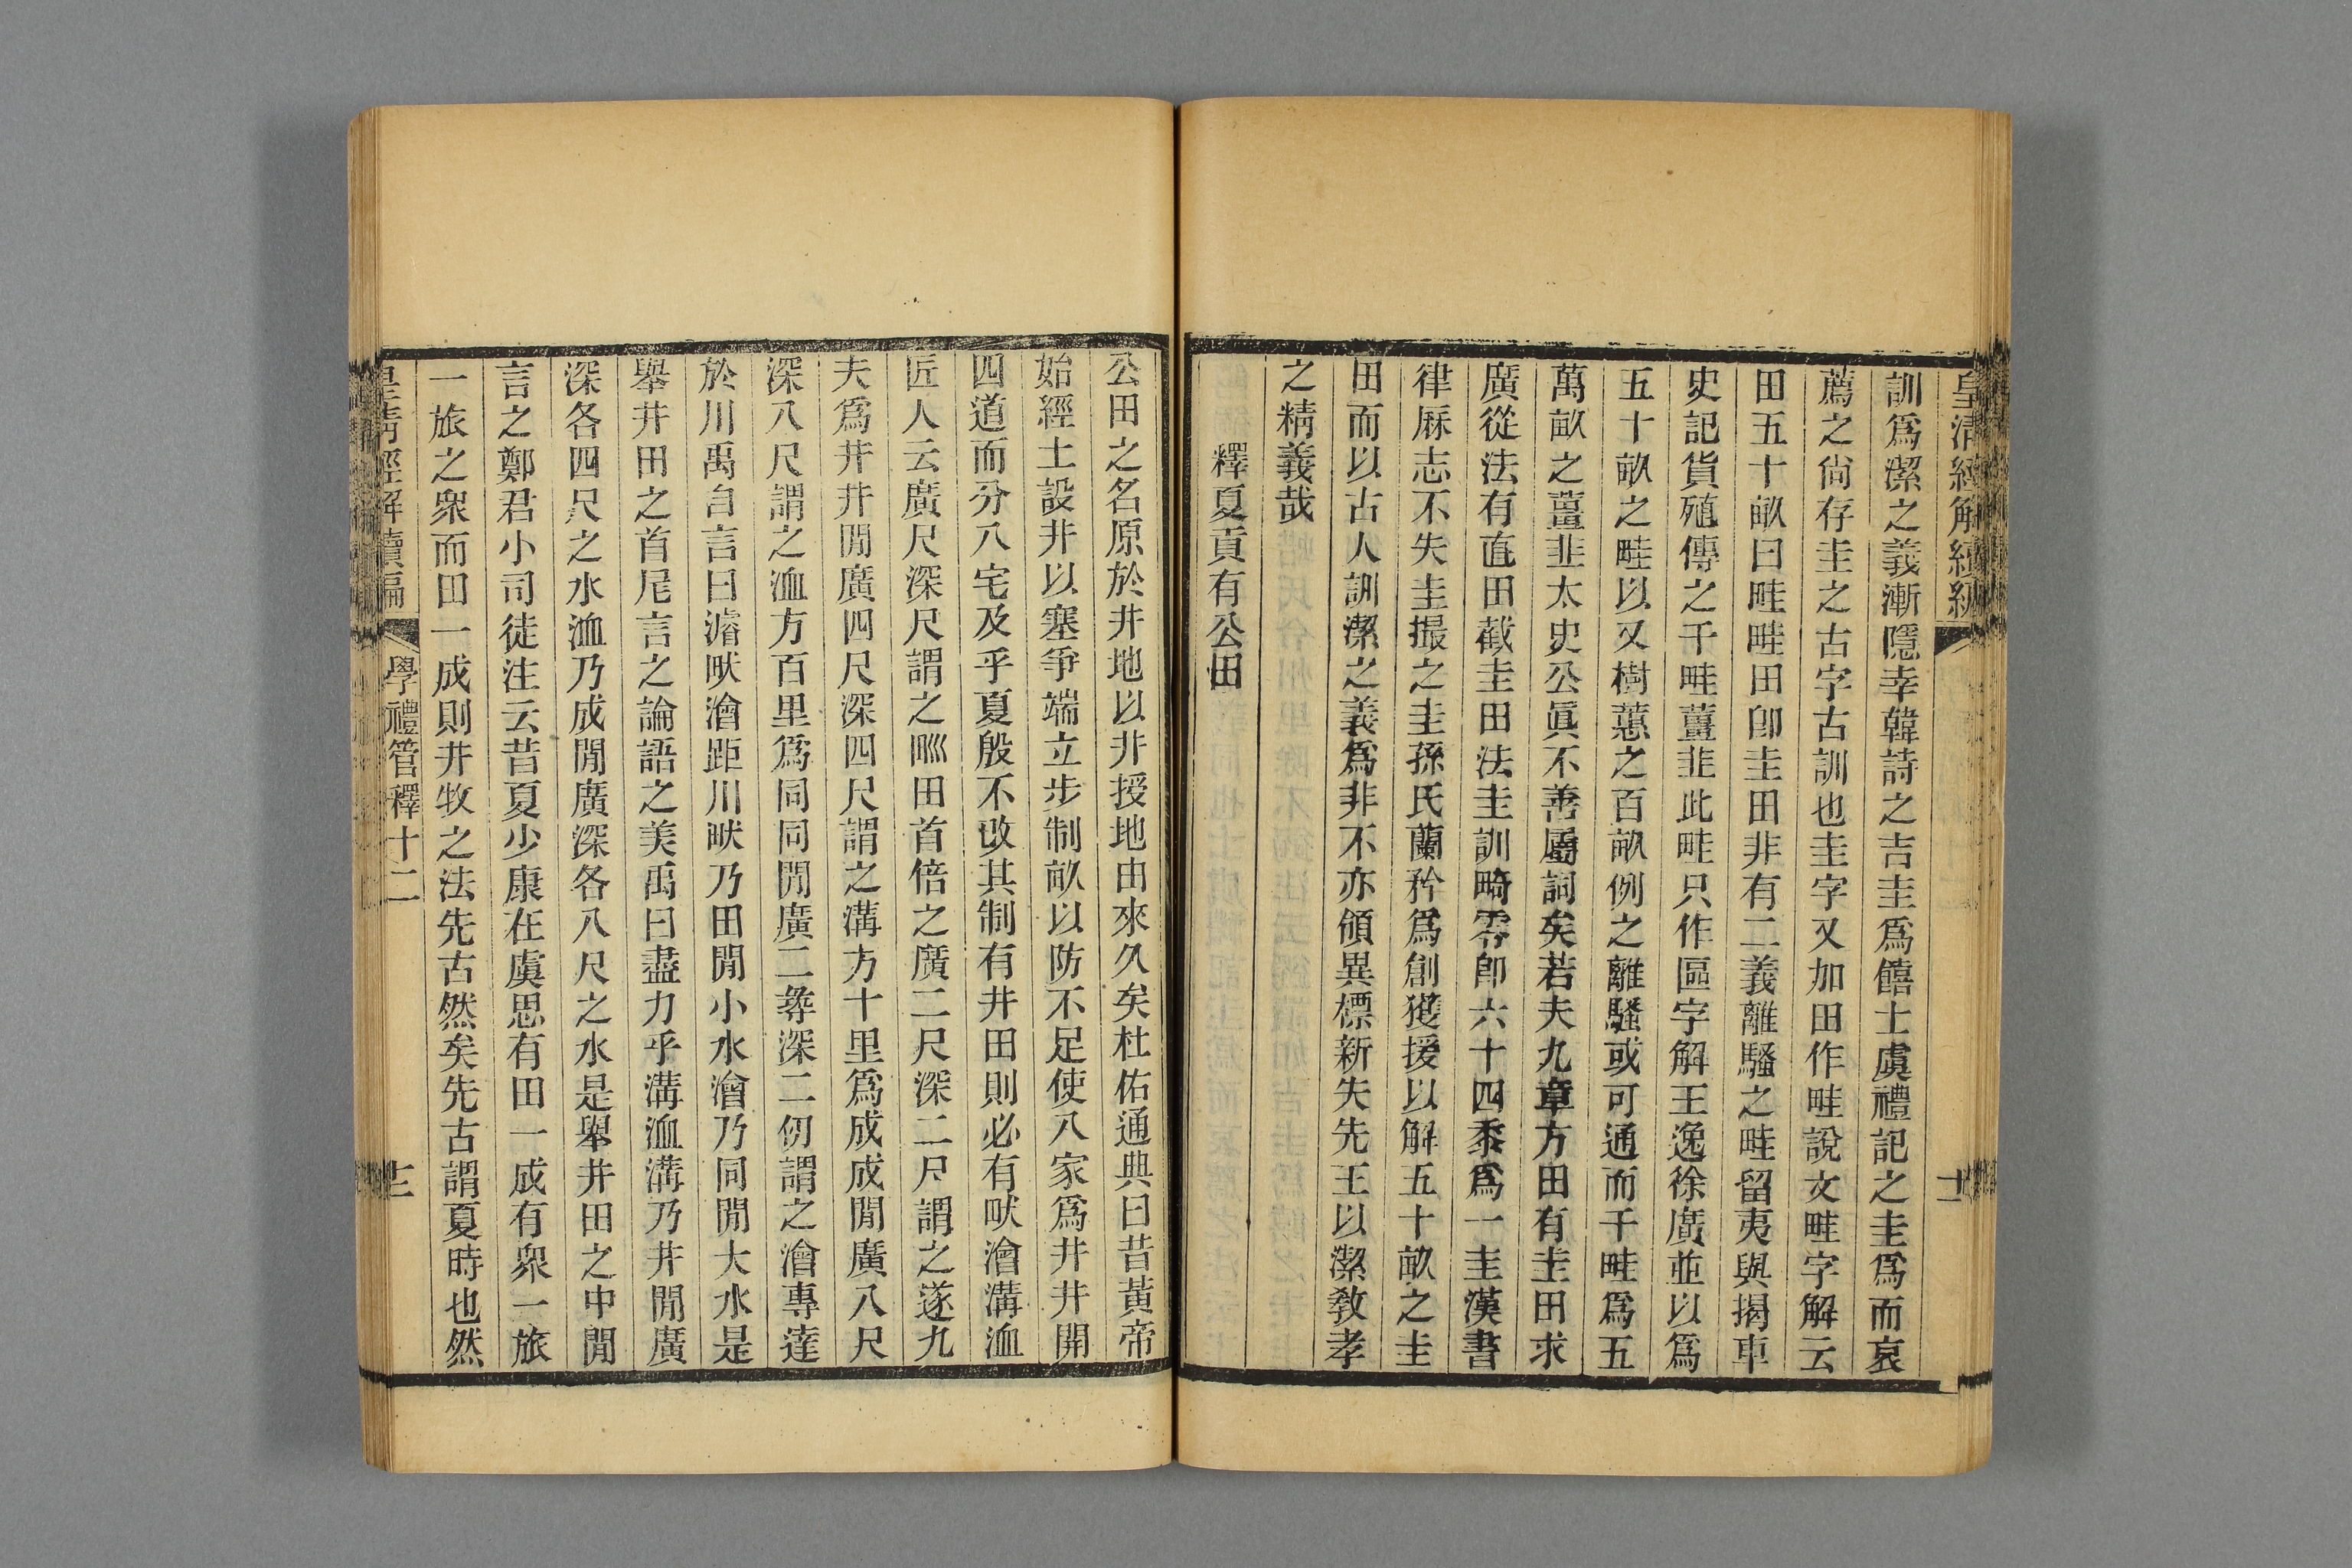 皇清經解續編
十二
訓爲潔之義漸隱幸韓詩之吉圭爲饎士虞禮記之圭爲而哀
薦之尙存圭之古字古訓也圭字又加田作畦說文畦字解云
田五十畝曰畦畦田卽圭田非有二義離騷之畦留夷與揭車
史記貨殖傳之千畦薑韭此畦只作區字解王逸徐廣並以爲
五十畝之畦以又樹蕙之百畝例之離騷或可通而千畦爲五
萬畝之薑韭太史公眞不善屬詞矣若夫九章方田有圭田求
廣從法有直田截圭田法圭訓畸零卽六十四黍爲一圭漢書
律厤志不失圭撮之圭孫氏蘭矜爲創獲援以解五十畝之圭
田而以古人訓潔之義爲非不亦傾異標新失先王以潔敎孝
之精義哉
釋夏貢有公田
公田之名原於井地以井授地由來久矣杜佑通典曰昔黃帝
始經土設井以塞爭端立步制畝以防不足使八家爲井井開
四道而分八宅及乎夏殷不改其制有井田則必有畎澮溝洫
匠人云廣尺深尺謂之𤰕田首倍之廣二尺深二尺謂之遂九
夫爲井井閒廣四尺深四尺謂之溝方十里爲成成閒廣八尺
深八尺謂之洫方百里爲同同閒廣二尋深二仞謂之澮專達
於川禹自言曰濬畎澮距川畎乃田閒小水澮乃同閒大水是
舉井田之首尾言之論語之美禹曰盡力乎溝洫溝乃井閒廣
深各四尺之水洫乃成閒廣深各八尺之水是舉井田之中閒
言之鄭君小司徒注云昔夏少康在虞思有田一成有衆一旅
一旅之衆而田一成則井牧之法先古然矣先古謂夏時也然
皇淸經解續編
學禮管釋十二